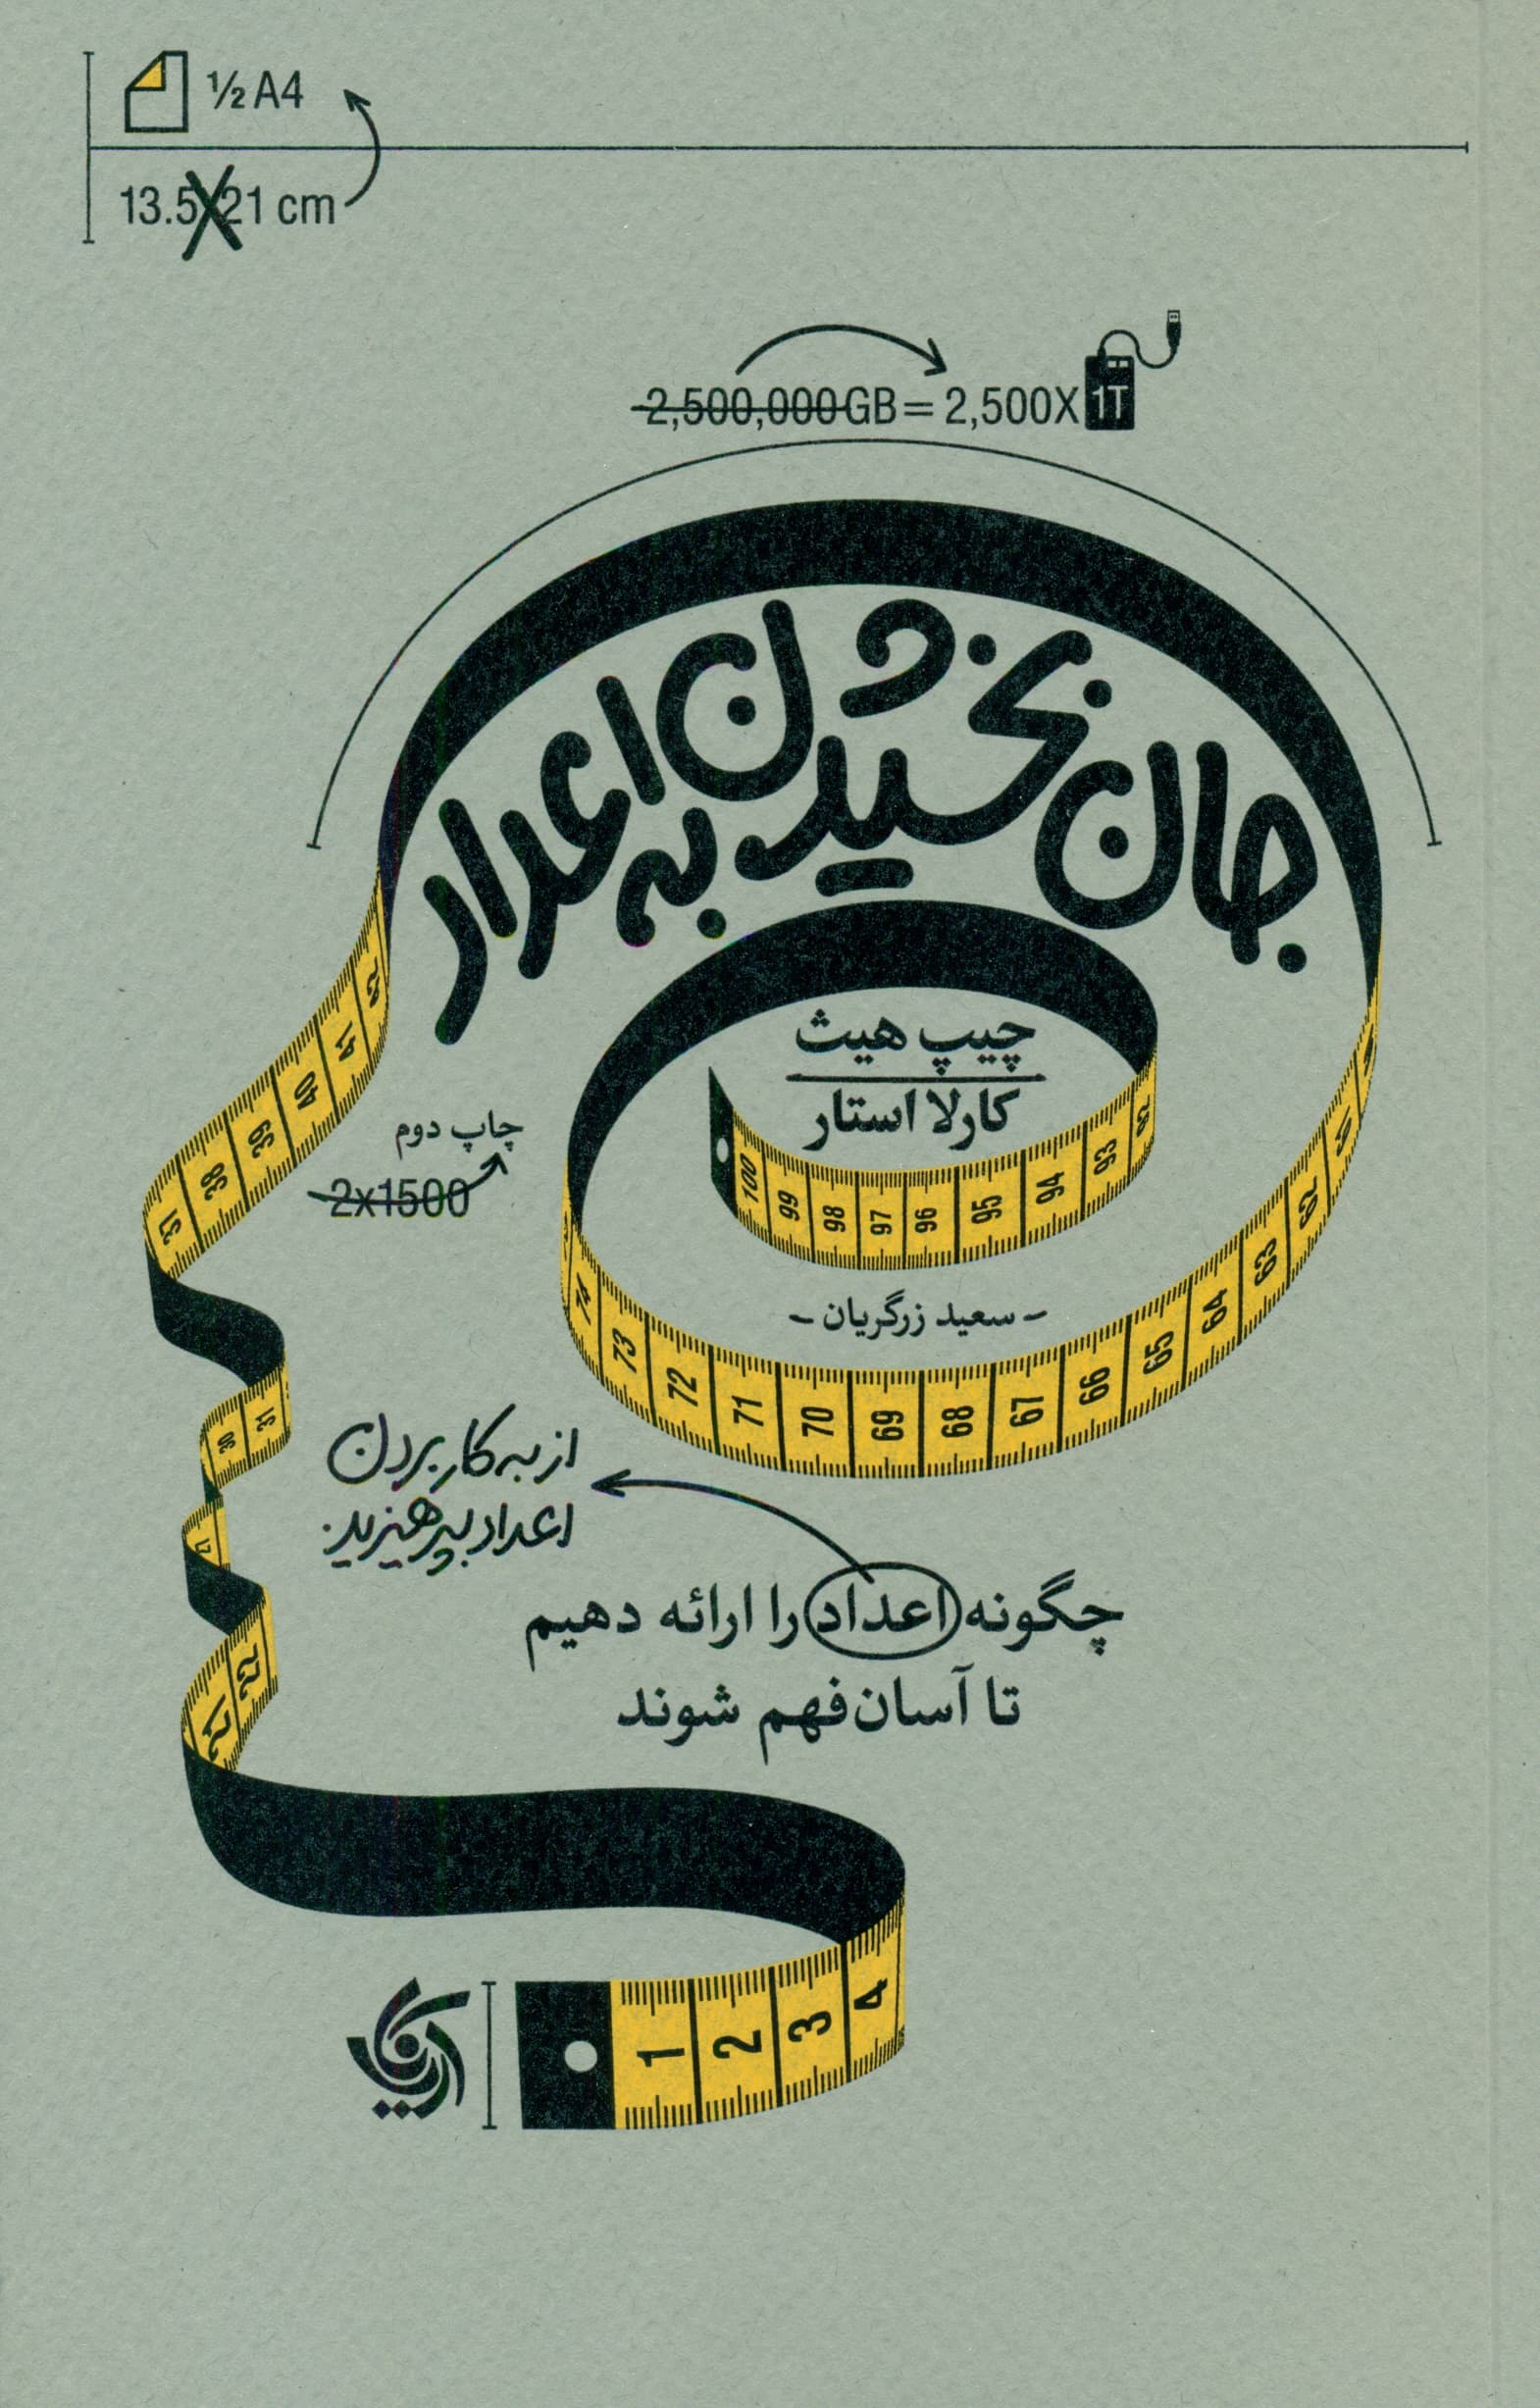 ½ A4
13.5X21 cm
2,500,000GB = 2,500X 1T
جان بخشیدن به اعداد
چیپ هیث
کارلا استار
چاپ دوم
2x1500
- سعید زرگریان -
از به کار بردن
اعداد بپرهیزید.
چگونه اعداد را ارائه دهیم
تا آسان‌فهم شوند
42
41
40
39
38
37
31
30
27
22
21
1
2
3
4
100
99
98
97
96
95
94
93
92
74
73
72
71
70
69
68
67
66
65
64
63
62
61